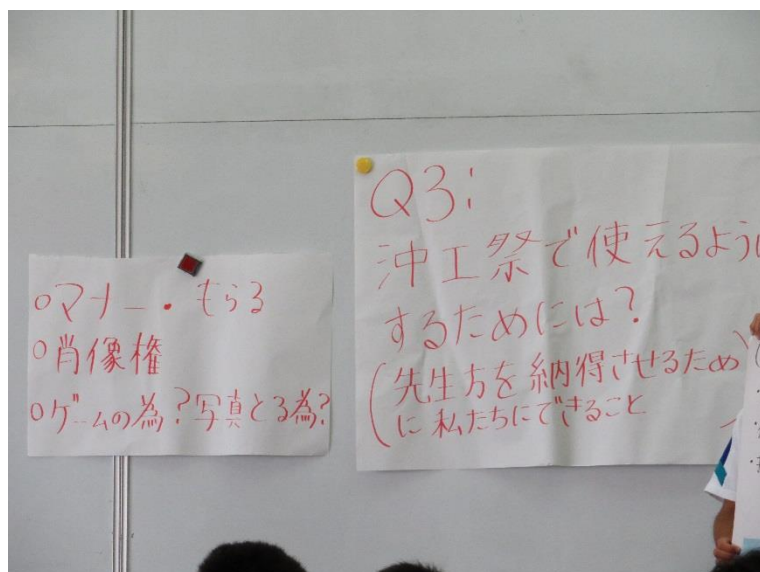 ○マナー・もらる
○肖像権
○ゲームの為?写真とる為?
Q3:
沖工祭で使えるように
するためには?
(先生方を納得させるため
に私たちにできること)